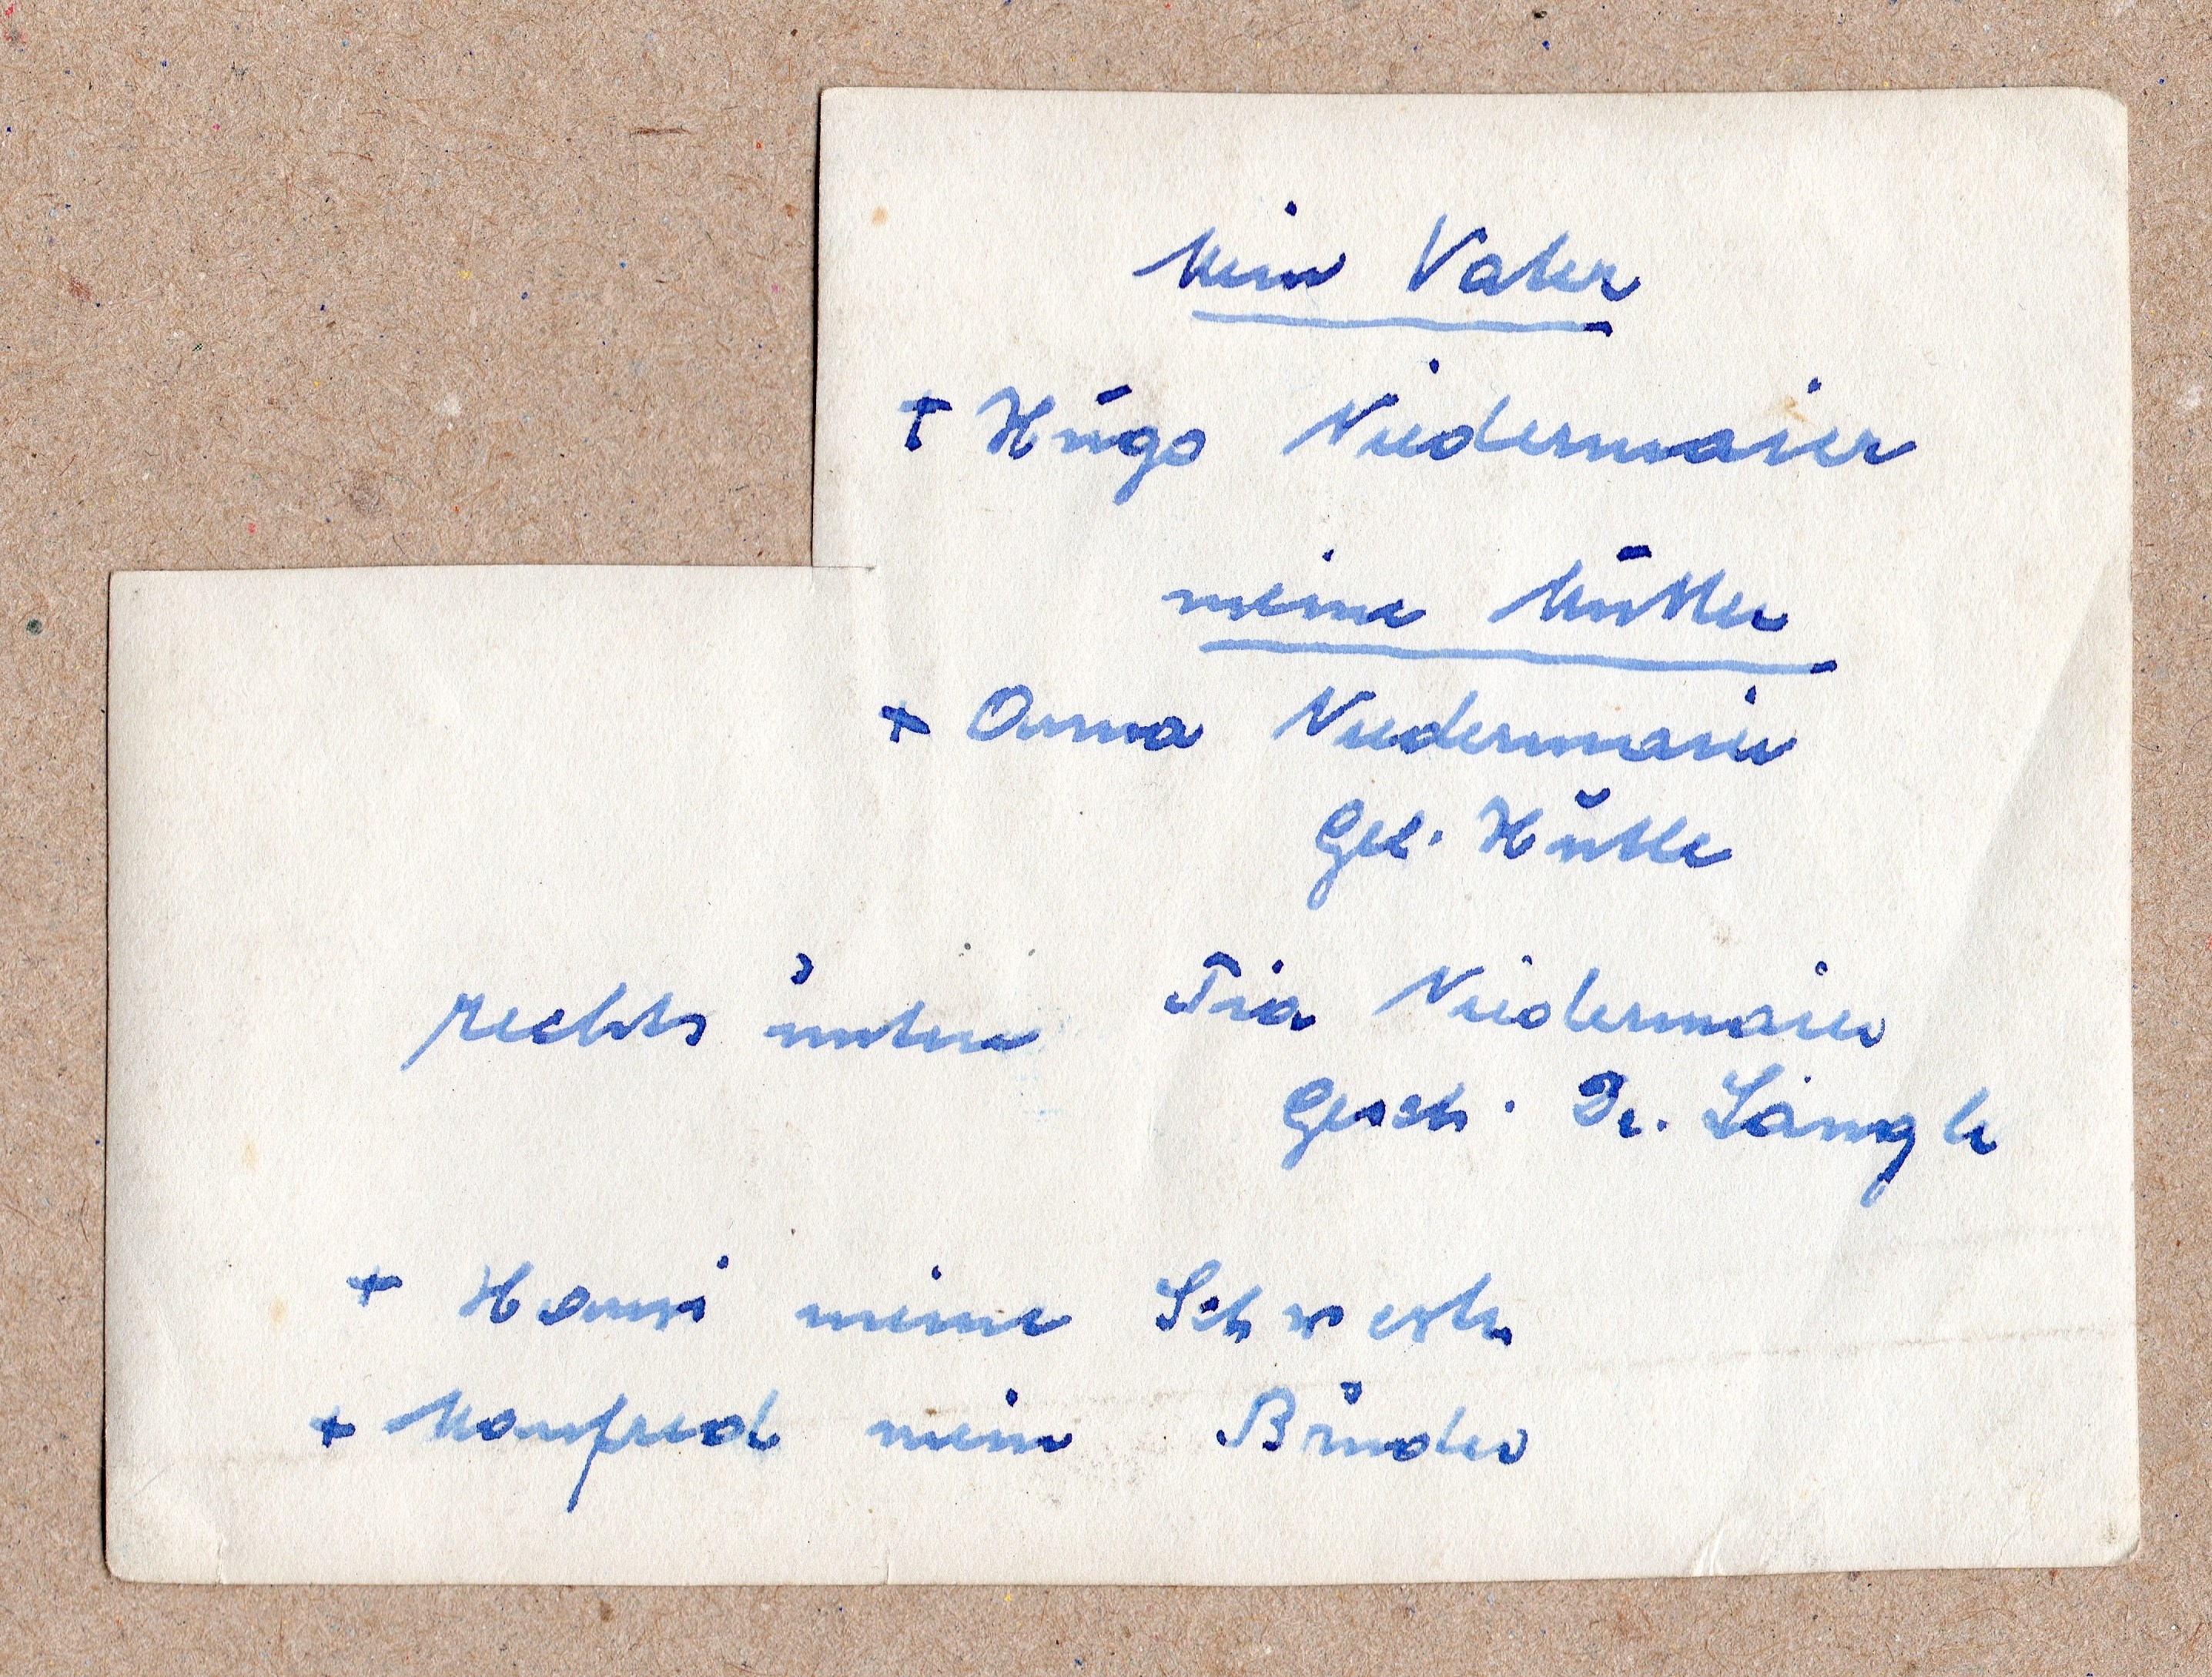 Mein Vater
† Hugo Niedermaier
meine Mutter
+ Anna Niedermaier
Geb. Hutle
rechts unten Pia Niedermaier
Gesch. Dr. Längle
+ Hansi meine Schwester
+ Manfred mein Bruder